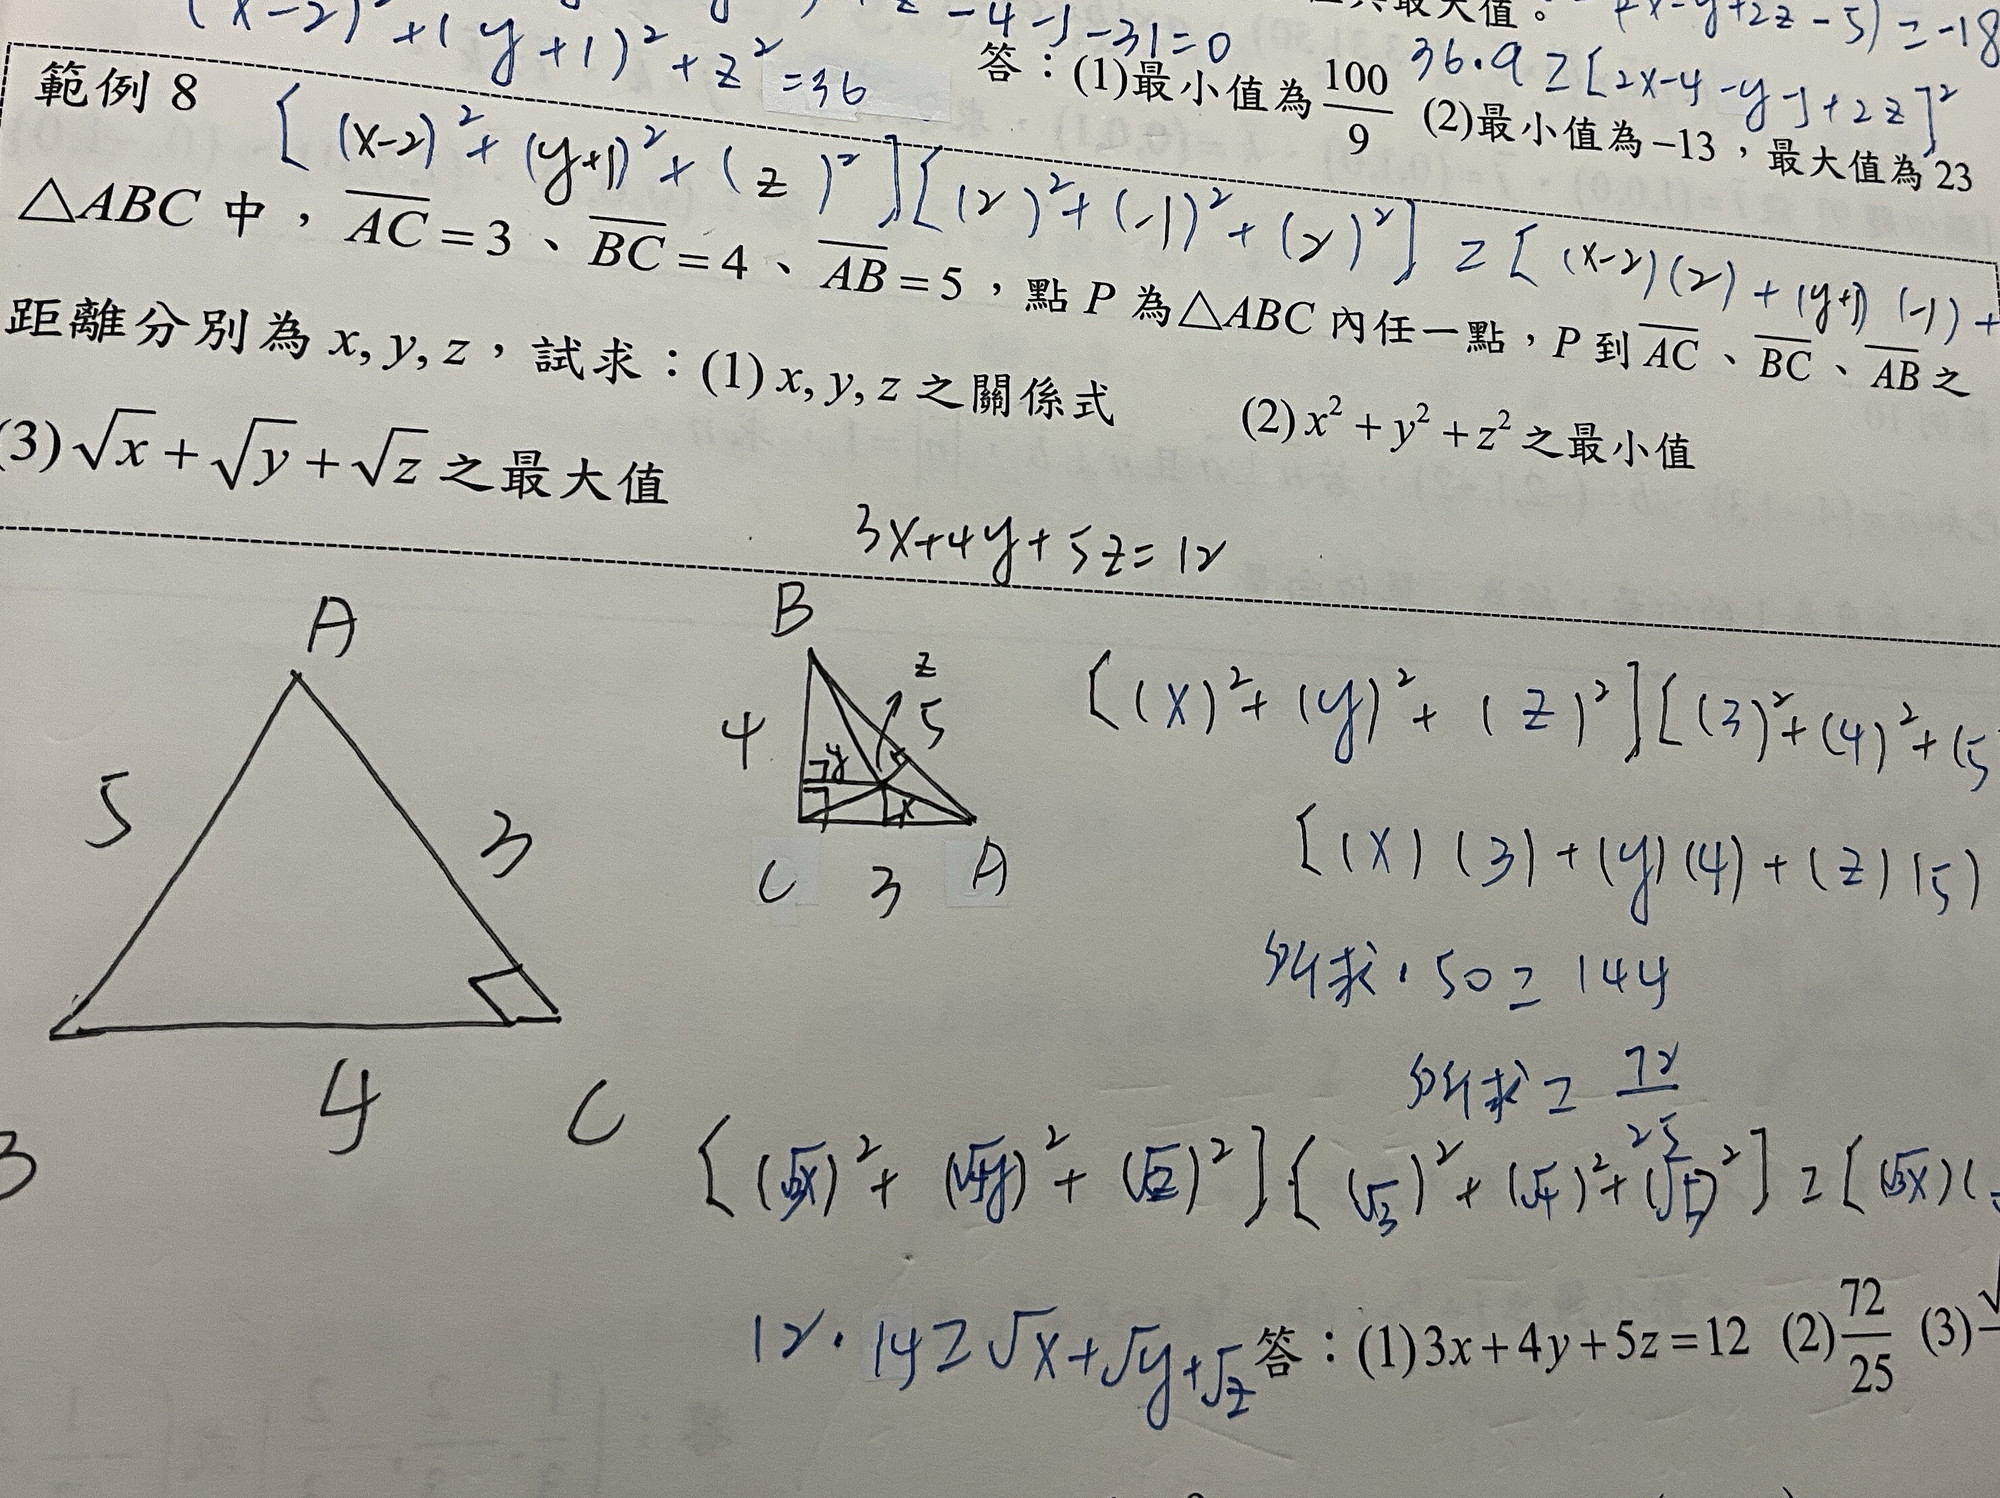 (x-2)²+(y+1)²+z²=36
-4-1-31=0
最大值。
(2x-y+2z-5)=-18
答：(1)最小值為100/9 (2)最小值為-13，最大值為23
36·9≥[2x-4-y-1+2z]²
範例 8
[(x-2)²+(y+1)²+(z)²][(2)²+(-1)²+(2)²]≥[(x-2)(2)+(y+1)(-1)+
△ABC 中，AC=3、BC=4、AB=5，點 P 為△ABC 內任一點，P 到 AC、BC、AB 之
距離分別為 x, y, z，試求：(1) x, y, z 之關係式 (2) x²+y²+z² 之最小值
(3) √x+√y+√z 之最大值
3x+4y+5z=12
A
5
3
4
C
B
4
z
5
y
x
C
3
A
[(x)²+(y)²+(z)²][(3)²+(4)²+(5
[(x)(3)+(y)(4)+(z)(5)
所求·50≥144
所求≥72/25
3
[(√3x)²+(√4y)²+(√5z)²][(√3)²+(√4)²+(√5)²]≥[(√3x)(
12·14≥√x+√y+√z
答：(1)3x+4y+5z=12 (2)72/25 (3)